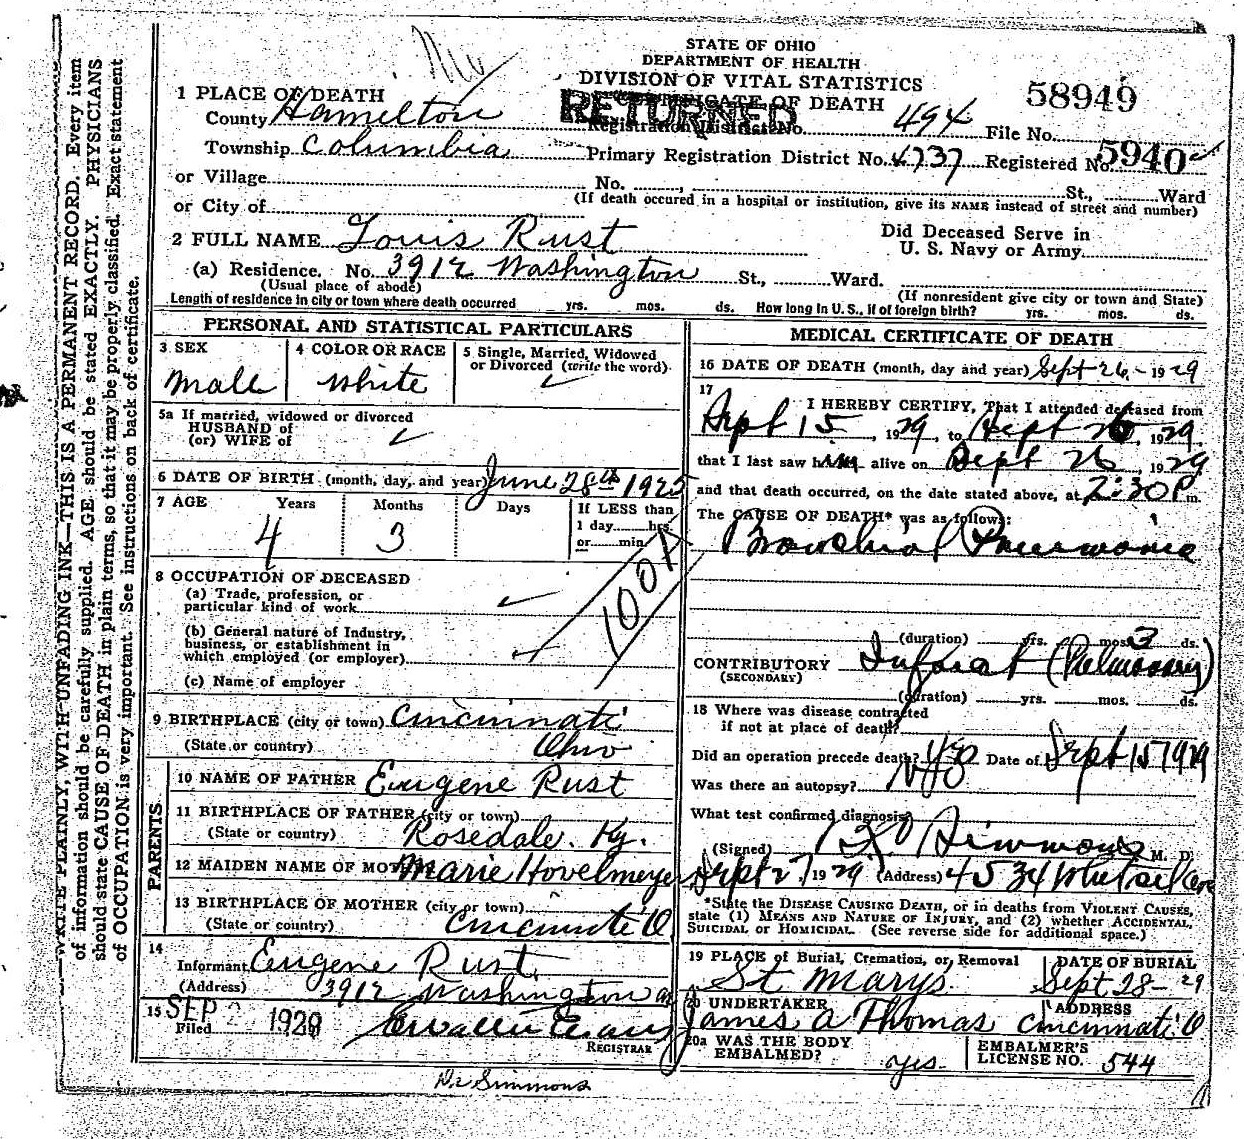 STATE OF OHIO
DEPARTMENT OF HEALTH
DIVISION OF VITAL STATISTICS
CERTIFICATE OF DEATH
RETURNED
58949
1 PLACE OF DEATH
County Hamilton Registration District No. 494 File No.
Township Columbia Primary Registration District No. 4737 Registered No. 5940
or Village No. , St., Ward
or City of (If death occured in a hospital or institution, give its NAME instead of street and number)
2 FULL NAME Louis Rust Did Deceased Serve in U. S. Navy or Army
(a) Residence. No. 3912 Washington St., Ward.
(Usual place of abode) (If nonresident give city or town and State)
Length of residence in city or town where death occurred yrs. mos. ds. How long in U. S., if of foreign birth? yrs. mos. ds.
PERSONAL AND STATISTICAL PARTICULARS
3 SEX 4 COLOR OR RACE 5 Single, Married, Widowed or Divorced (write the word)
Male White
5a If married, widowed or divorced
HUSBAND of
(or) WIFE of
6 DATE OF BIRTH (month, day, and year) June 28th 1925
7 AGE Years Months Days If LESS than
1 day hrs.
or min.
4 3
8 OCCUPATION OF DECEASED
(a) Trade, profession, or
particular kind of work
(b) General nature of Industry,
business, or establishment in
which employed (or employer)
(c) Name of employer
9 BIRTHPLACE (city or town) Cincinnati
(State or country) Ohio
PARENTS
10 NAME OF FATHER Eugene Rust
11 BIRTHPLACE OF FATHER (city or town)
(State or country) Rosedale. Ky.
12 MAIDEN NAME OF MOTHER Marie Hovelmeyer
13 BIRTHPLACE OF MOTHER (city or town)
(State or country) Cincinnati O
14
Informant Eugene Rust
(Address) 3912 Washington av
15 SEP 1929
Filed
REGISTRAR
MEDICAL CERTIFICATE OF DEATH
16 DATE OF DEATH (month, day and year) Sept 26 - 1929
17
I HEREBY CERTIFY, That I attended deceased from
Sept 15, 1929, to Sept 26, 1929,
that I last saw him alive on Sept 26, 1929
and that death occurred, on the date stated above, at 2:30 P m.
The CAUSE OF DEATH* was as follows:
Bronchial Pneumonia
(duration) yrs. mos. 3 ds.
CONTRIBUTORY Infarct (Pulmonary)
(SECONDARY)
(duration) yrs. mos. ds.
18 Where was disease contracted
if not at place of death?
Did an operation precede death? yes Date of Sept 15 1929
Was there an autopsy? No
What test confirmed diagnosis?
(Signed) Simmons M. D.
Sept 27, 1929 (Address) 4534 Whetsel Ave
*State the DISEASE CAUSING DEATH, or in deaths from VIOLENT CAUSES,
state (1) MEANS AND NATURE OF INJURY, and (2) whether ACCIDENTAL,
SUICIDAL or HOMICIDAL. (See reverse side for additional space.)
19 PLACE of Burial, Cremation, or Removal DATE OF BURIAL
St Marys. Sept 28 - 29
20 UNDERTAKER ADDRESS
James A Thomas Cincinnati O
20a WAS THE BODY
EMBALMED? yes. EMBALMER'S
LICENSE NO. 544
Dr Simmons
WRITE PLAINLY, WITH UNFADING INK—THIS IS A PERMANENT RECORD. Every item
of information should be carefully supplied. AGE should be stated EXACTLY. PHYSICIANS
should state CAUSE OF DEATH in plain terms, so that it may be properly classified. Exact statement
of OCCUPATION is very important. See instructions on back of certificate.